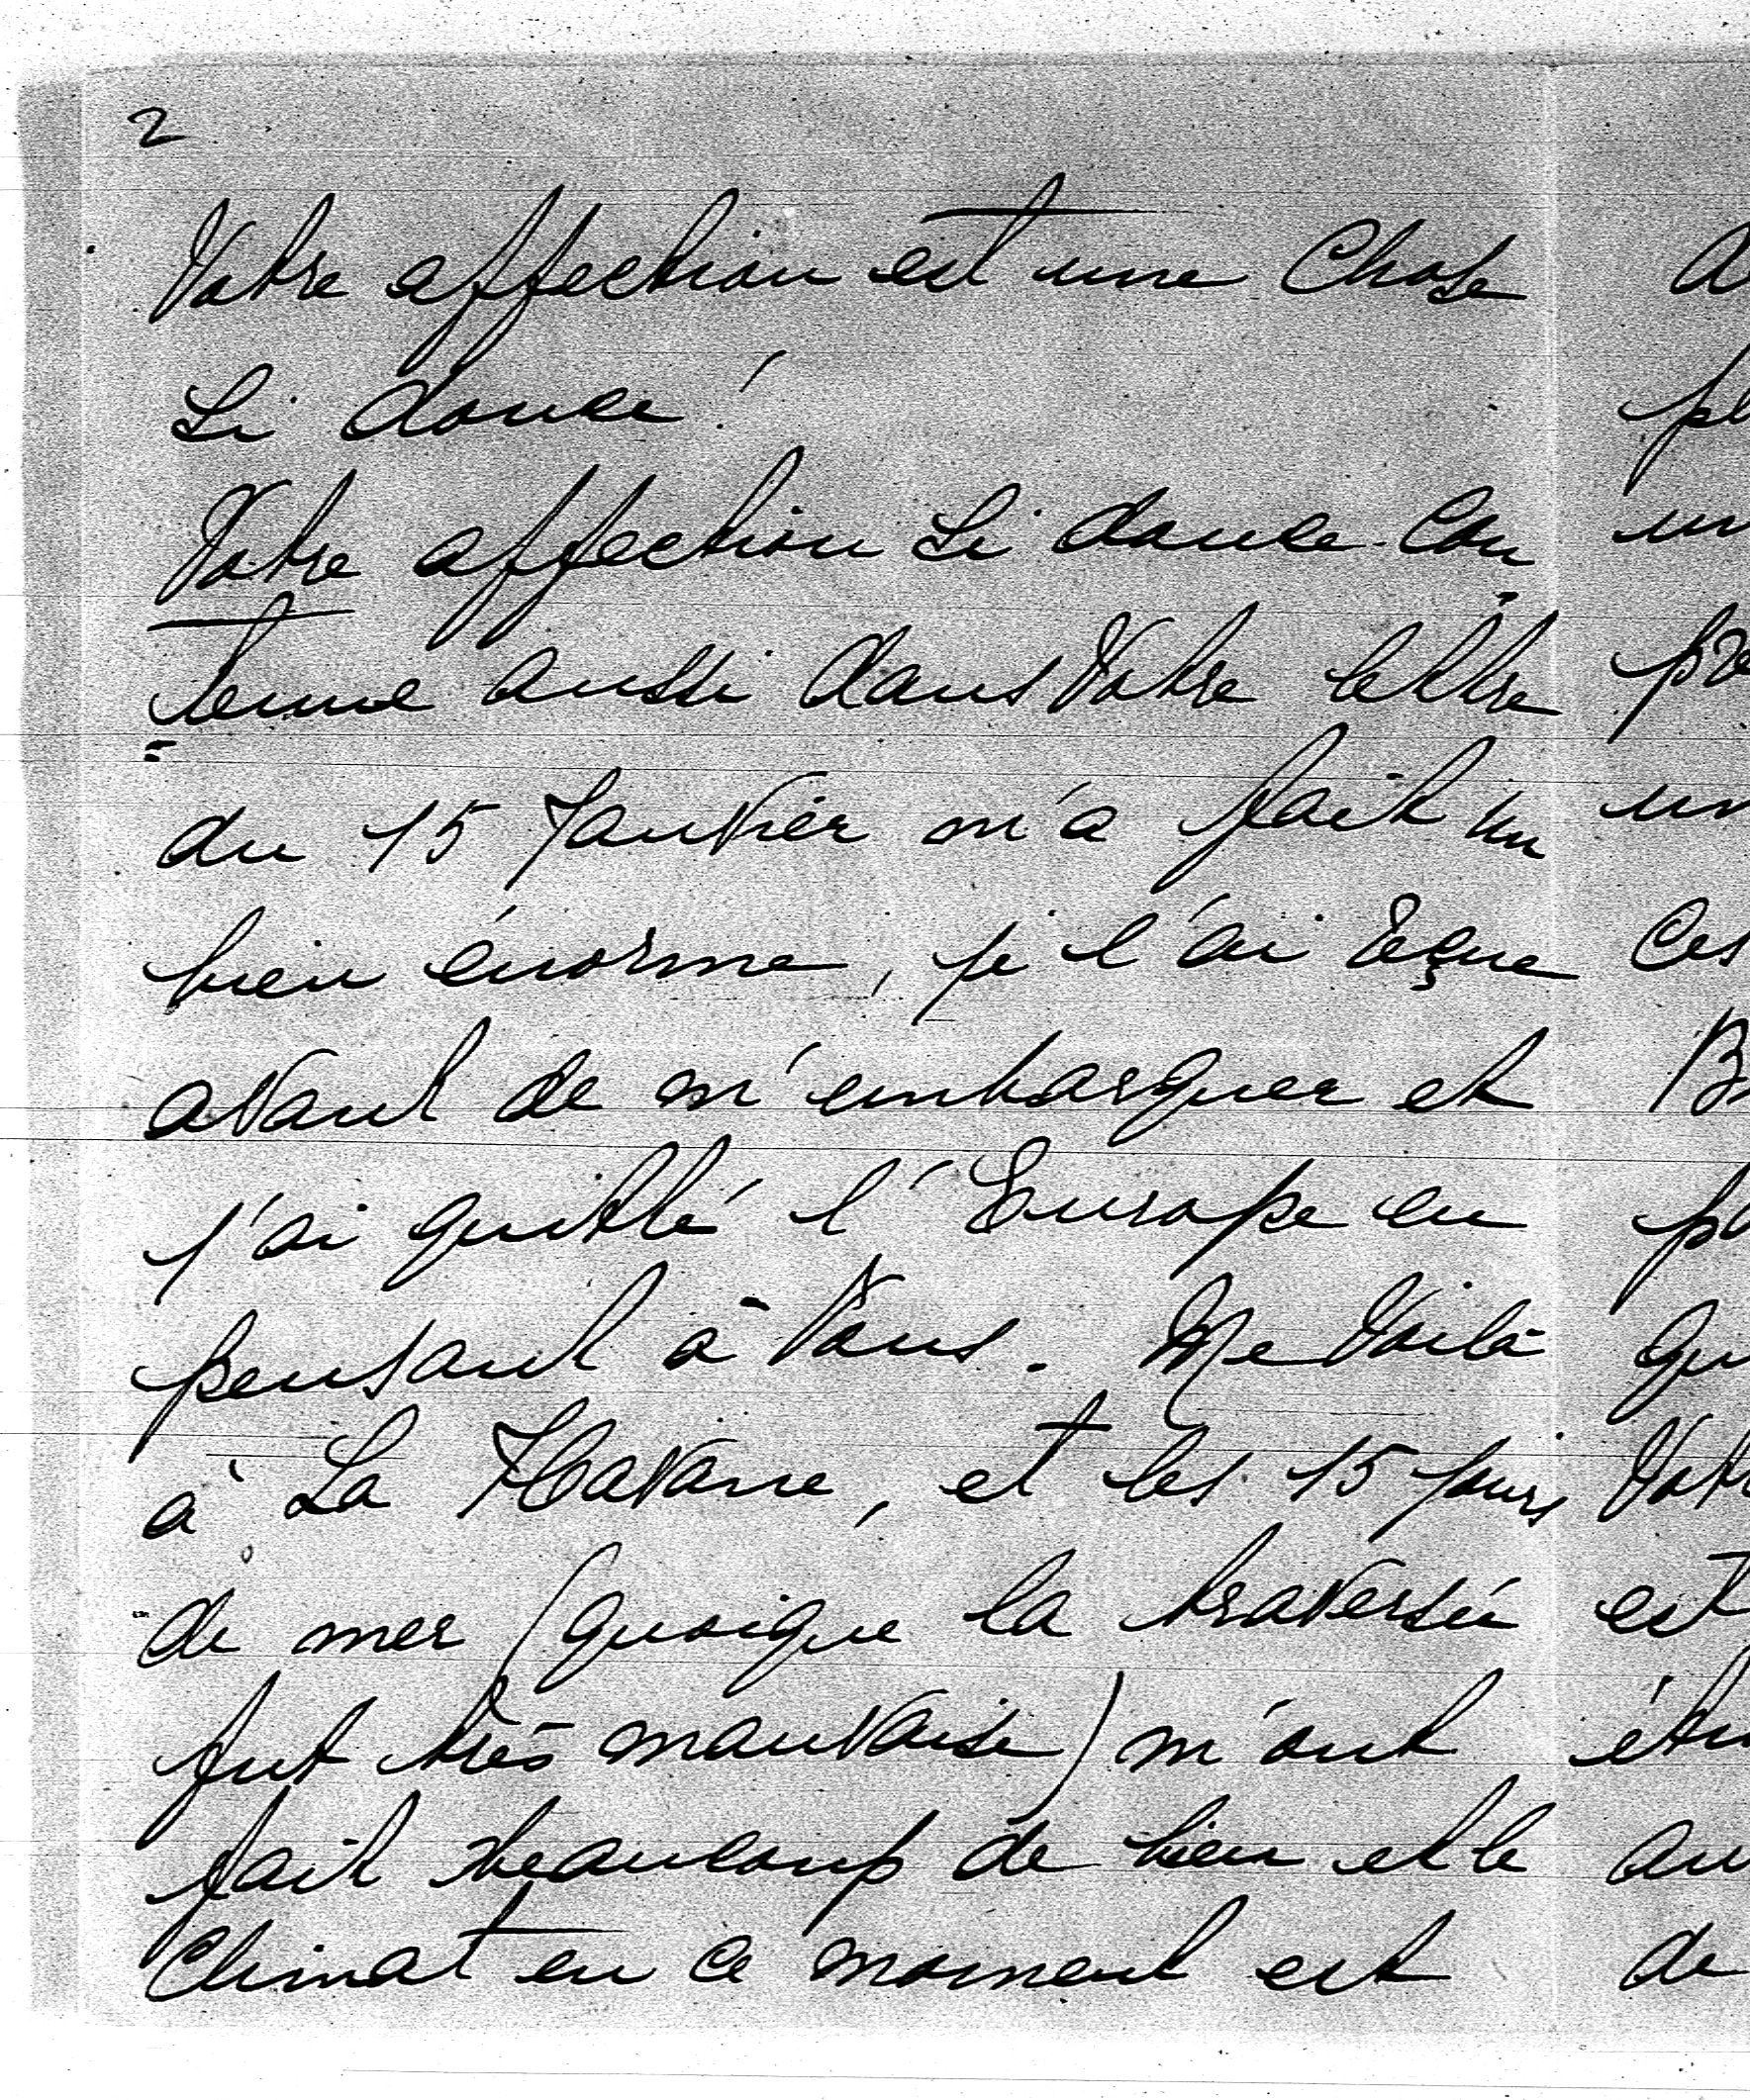 2
Votre affection est une Chose
Si douce!
Votre affection Si douce Con
=tenue aussi dans Votre lettre
du 15 Janvier m'a fait un
bien énorme, je l'ai reçue
avant de m'embarquer et
j'ai quitté l'Europe en
pensant à Vous. Me Voilà
à La Havane, et les 15 jours
de mer (quoique la traversée
fut très mauvaise) m'ont
fait beaucoup de bien et le
Climat en ce moment est